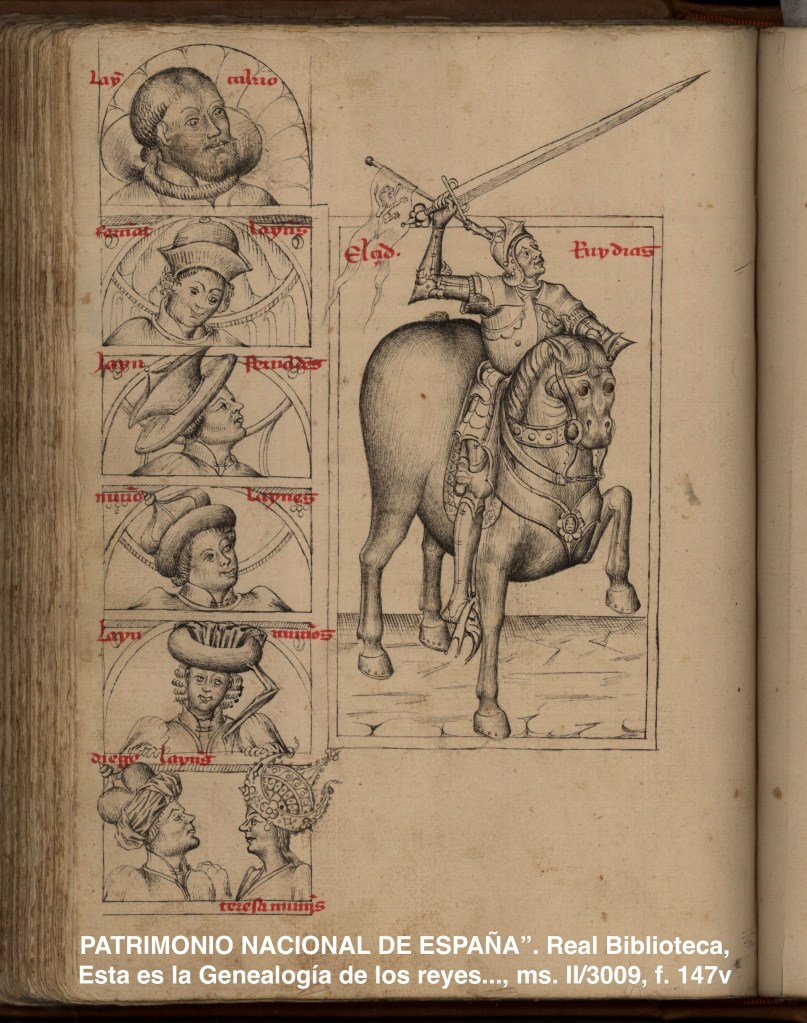 Layn caluo
fernant laynes
El çid. Ruy dias
layn fernãdes
nuño laynes
layn nunnos
diego laynes
teresa nunnes
PATRIMONIO NACIONAL DE ESPAÑA”. Real Biblioteca,
Esta es la Genealogía de los reyes..., ms. II/3009, f. 147v